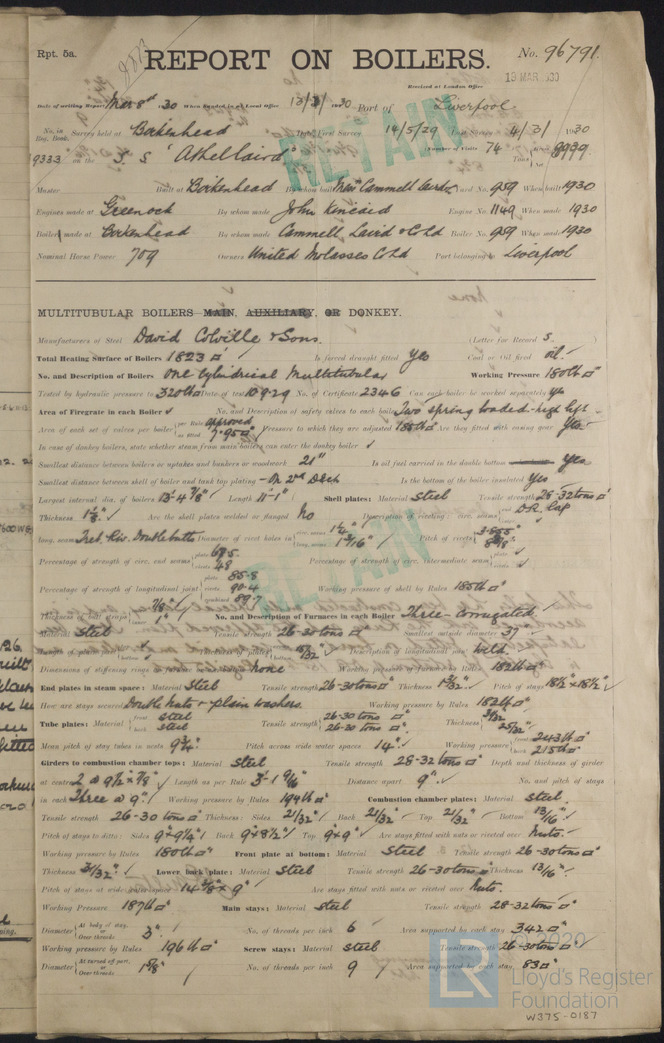 Rpt. 5a.
REPORT ON BOILERS.
No. 96791.
Received at London Office
13 MAR 1930
Date of writing Report Mar 8th 1930 When handed in at Local Office 13/3/1930 Port of Liverpool
No. in Reg. Book. Survey held at Birkenhead Date, First Survey 14/5/29 Last Survey 4/3/1930
9333 on the S.S "Athellaird" (Number of Visits 74
Master Built at Birkenhead By whom built Messrs Cammell Laird Yard No. 959 When built 1930
Engines made at Greenock By whom made John Kincaid Engine No. 1149 When made 1930
Boilers made at Birkenhead By whom made Cammell, Laird & Co Ld Boiler No. 959 When made 1930
Nominal Horse Power 709 Owners United Molasses Co Ld Port belonging to Liverpool
RETAIN
MULTITUBULAR BOILERS MAIN, AUXILIARY, OR DONKEY.
Manufacturers of Steel David Colville & Sons. (Letter for Record S.
Total Heating Surface of Boilers 1823 □' Is forced draught fitted Yes Coal or Oil fired oil.
No. and Description of Boilers One Cylindrical Multitubular Working Pressure 180 lb □"
Tested by hydraulic pressure to 320 lb □" Date of test 10-9-29 No. of Certificate 2346 Can each boiler be worked separately Yes
Area of Firegrate in each Boiler ✓ No. and Description of safety valves to each boiler Two spring loaded - high lift
Area of each set of valves per boiler {per Rule approved as fitted 7.95 □" Pressure to which they are adjusted 185 lb □" Are they fitted with easing gear Yes
In case of donkey boilers, state whether steam from main boilers can enter the donkey boiler ✓
Smallest distance between boilers or uptakes and bunkers or woodwork 21" Is oil fuel carried in the double bottom Yes
Smallest distance between shell of boiler and tank top plating - On 2nd Deck Is the bottom of the boiler insulated Yes
Largest internal dia. of boilers 13'-4 7/8" Length 11'-1" Shell plates: Material Steel Tensile strength 28-32 tons □"
Thickness 1 1/8" Are the shell plates welded or flanged No Description of riveting: circ. seams {end D.R. Lap
long. seams Treb. Riv. Double butts Diameter of rivet holes in {circ. seams 1 1/4" long. seams 1 3/16" Pitch of rivets {3.855" 8 1/8"
Percentage of strength of circ. end seams {plate 67.5 rivets 48 Percentage of strength of circ. intermediate seam {plate rivets
Percentage of strength of longitudinal joint {plate 85.8 rivets 90.4 combined 89.7 Working pressure of shell by Rules 185 lb □"
Thickness of butt straps {7/8" 1" No. and Description of Furnaces in each Boiler Three - corrugated
Material Steel Tensile strength 26-30 tons □" Smallest outside diameter 37"
{bottom 15/32" Description of longitudinal joint Weld.
Dimensions of stiffening rings on furnace none Working pressure of furnace by Rules 182 lb □"
End plates in steam space: Material Steel Tensile strength 26-30 tons □" Thickness 1 3/32" Pitch of stays 18 1/2" x 18 1/2"
How are stays secured Double nuts & plain washers. Working pressure by Rules 182 lb □"
Tube plates: Material {front Steel back Steel Tensile strength {26-30 tons □" 26-30 tons □" Thickness {31/32" 25/32"
Mean pitch of stay tubes in nests 9 3/4" Pitch across wide water spaces 14" Working pressure {front 243 lb □" back 215 lb □"
Girders to combustion chamber tops: Material Steel Tensile strength 28-32 tons □" Depth and thickness of girder
at centre 2 @ 9 1/2" x 7/8" Length as per Rule 3'-1 9/16" Distance apart 9" No. and pitch of stays
in each Three @ 9" Working pressure by Rules 194 lb □" Combustion chamber plates: Material Steel.
Tensile strength 26-30 tons □" Thickness: Sides 21/32" Back 21/32" Top 21/32" Bottom 13/16"
Pitch of stays to ditto: Sides 9" x 9 1/4" Back 9" x 8 1/2" Top 9" x 9" Are stays fitted with nuts or riveted over Nuts.
Working pressure by Rules 180 lb □" Front plate at bottom: Material Steel Tensile strength 26-30 tons □"
Thickness 31/32" Lower back plate: Material Steel Tensile strength 26-30 tons □" Thickness 13/16"
Pitch of stays at wide water space 14 5/8" x 9" Are stays fitted with nuts or riveted over Nuts.
Working Pressure 187 lb □" Main stays: Material Steel Tensile strength 28-32 tons □"
Diameter {At body of stay, or Over threads 3" No. of threads per inch 6 Area supported by each stay 342 □"
Working pressure by Rules 196 lb □" Screw stays: Material Steel Tensile strength 26-30 tons □"
Diameter {At turned off part, or Over threads 1 5/8" No. of threads per inch 9 Area supported by each stay 83 □"
RETAIN
© 2020
LR
Lloyd's Register
Foundation
W375-0187